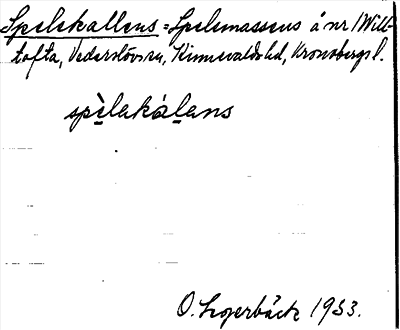 Spelekallens = Spelemassens å nr 1 Will-
tofta, Vederslövs sn, Kinnevalds hd, Kronobergs l.
spèlekálans
O. Lagerbäck 1933.